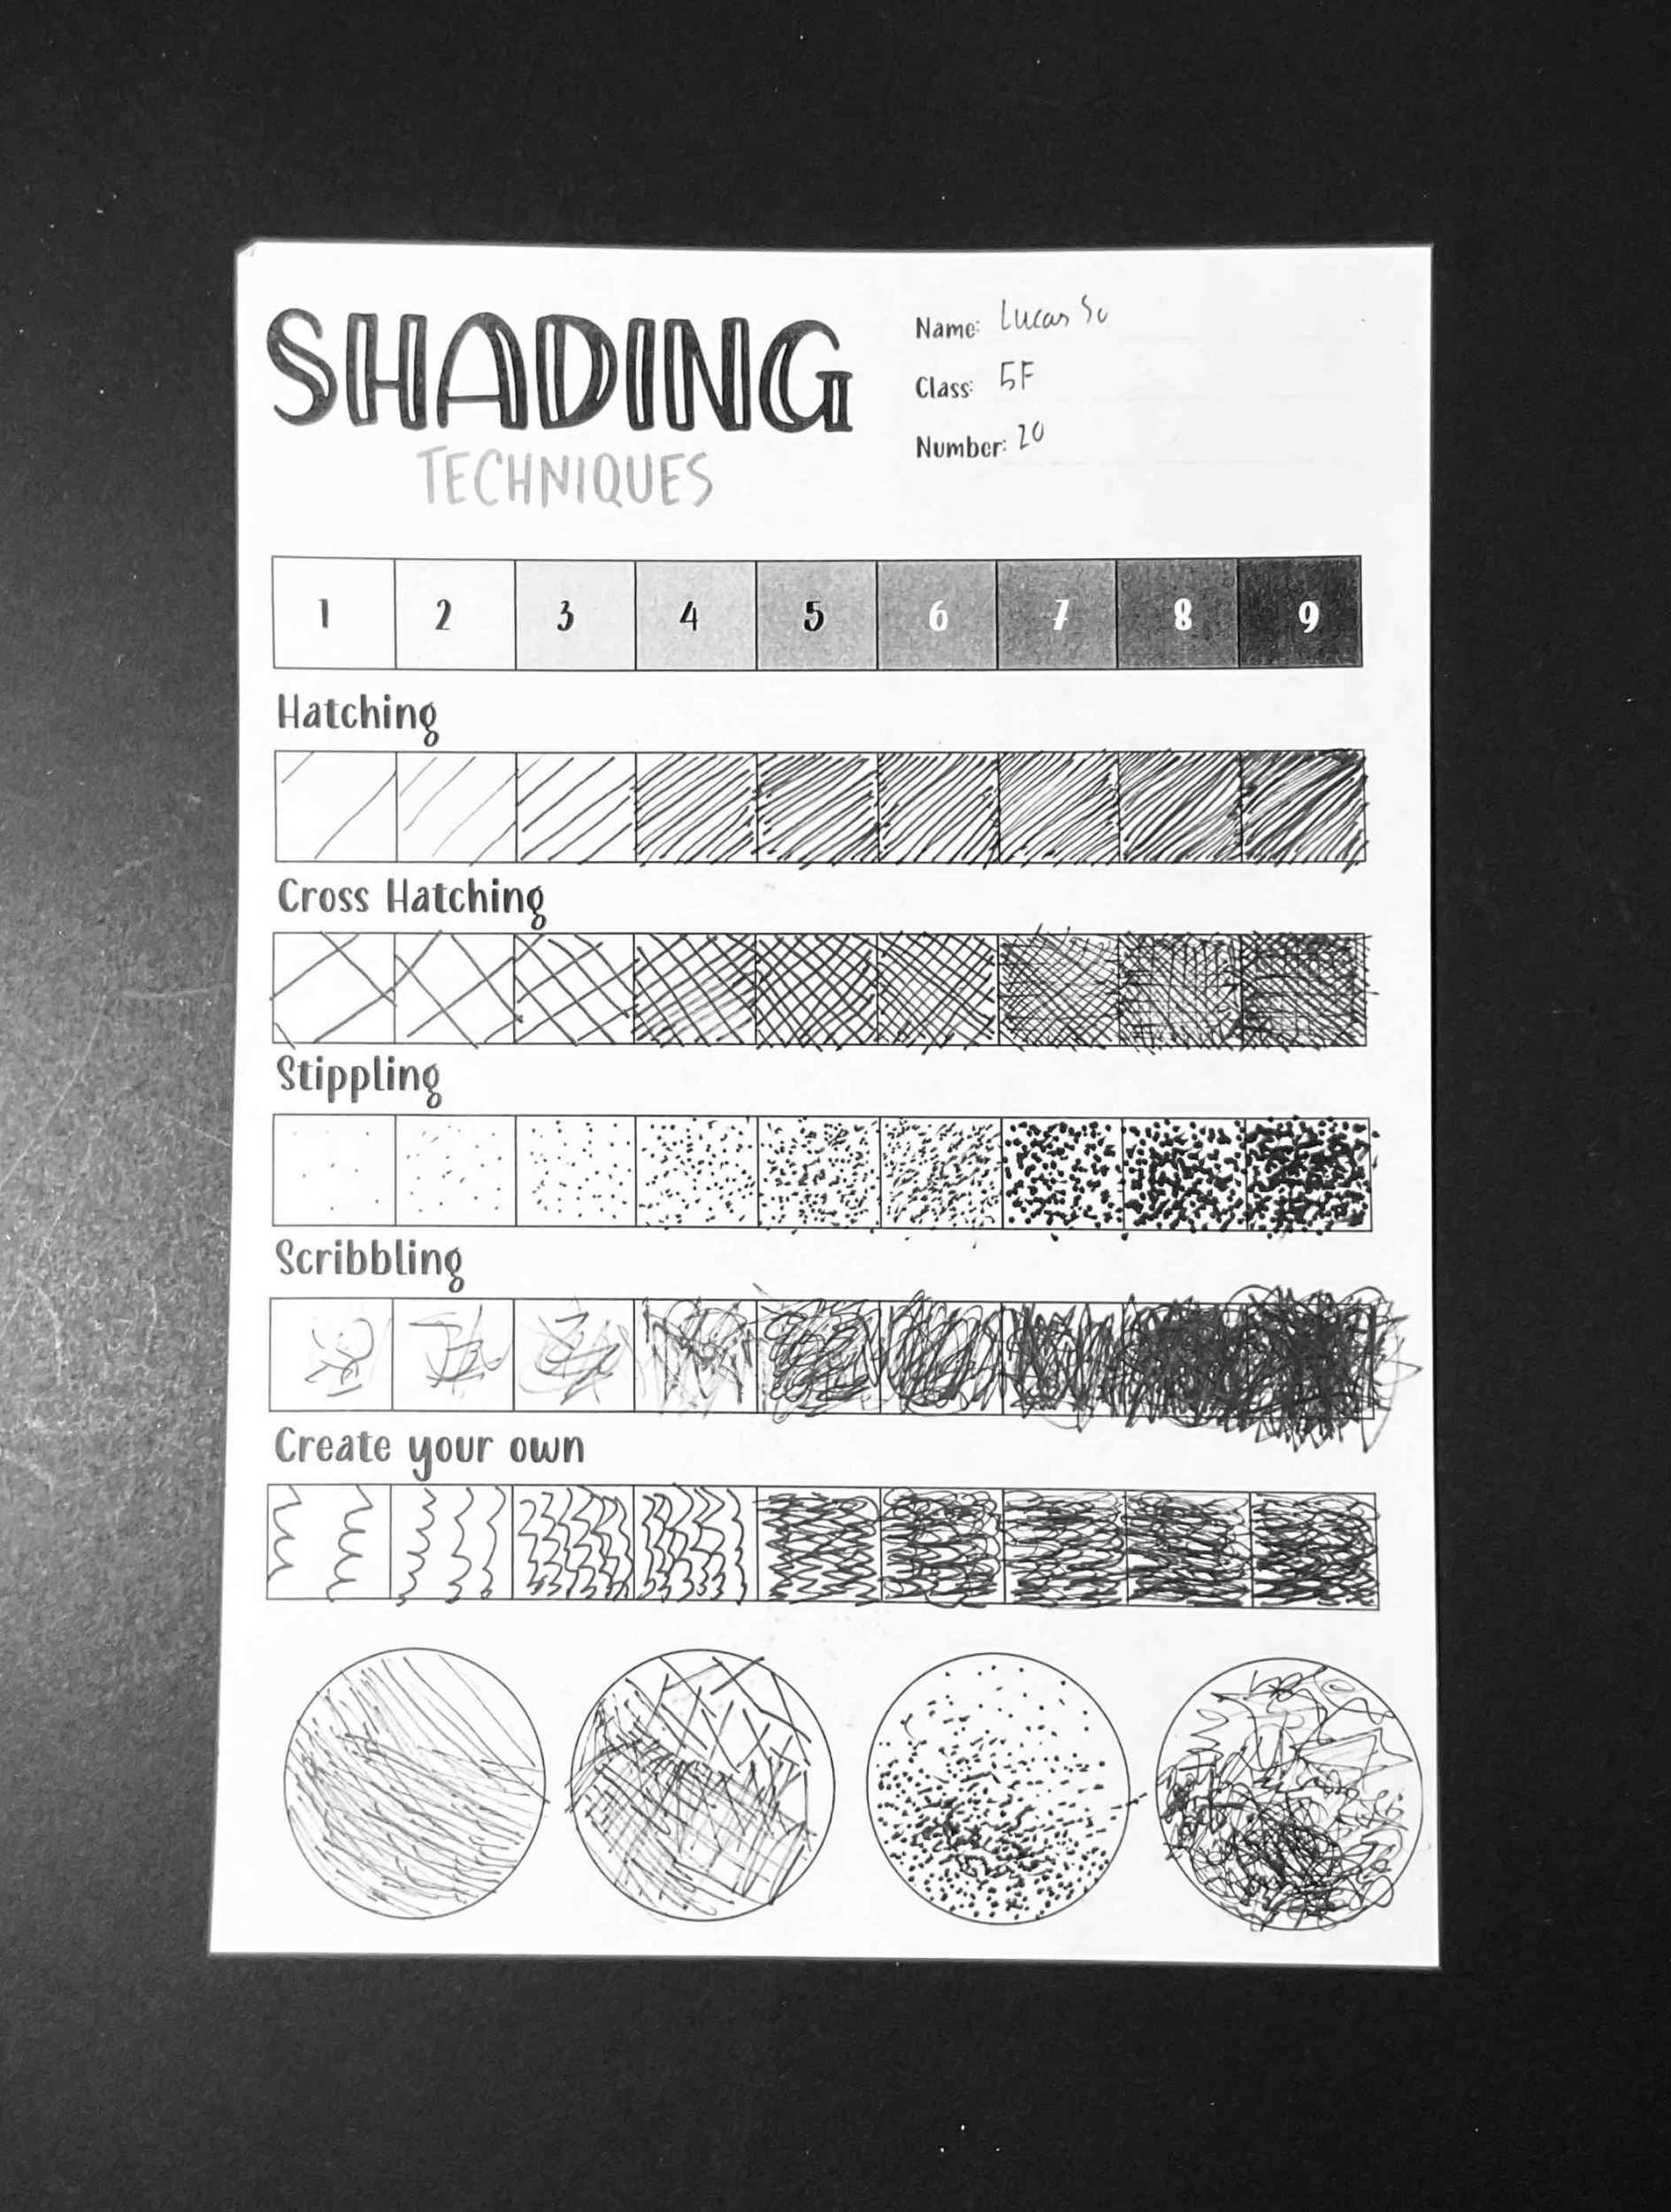 SHADING
TECHNIQUES
Name: Lucas So
Class: 5F
Number: 20
1 2 3 4 5 6 7 8 9
Hatching
Cross Hatching
Stippling
Scribbling
Create your own